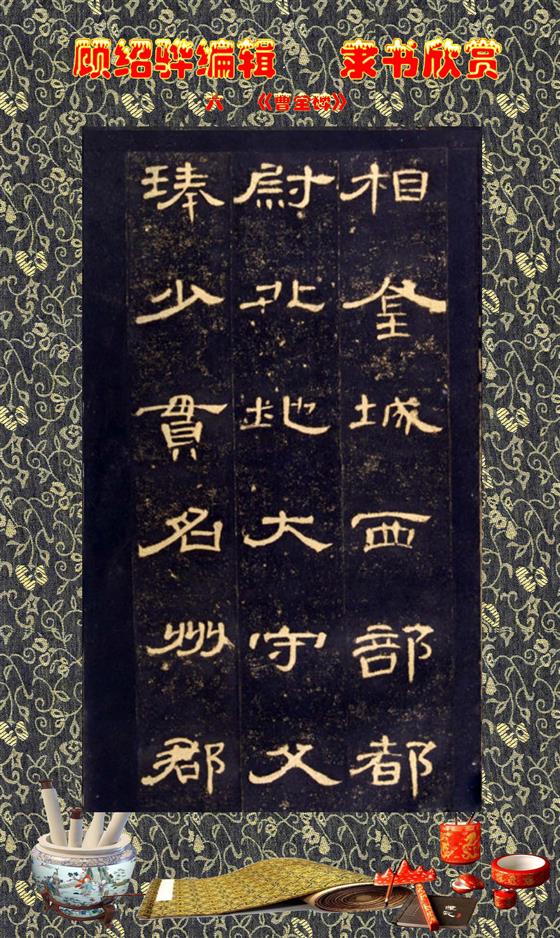 顾绍骅编辑 隶书欣赏
六 《曹全碑》
相金城西部都
尉北地大守父
琫少贯名州郡